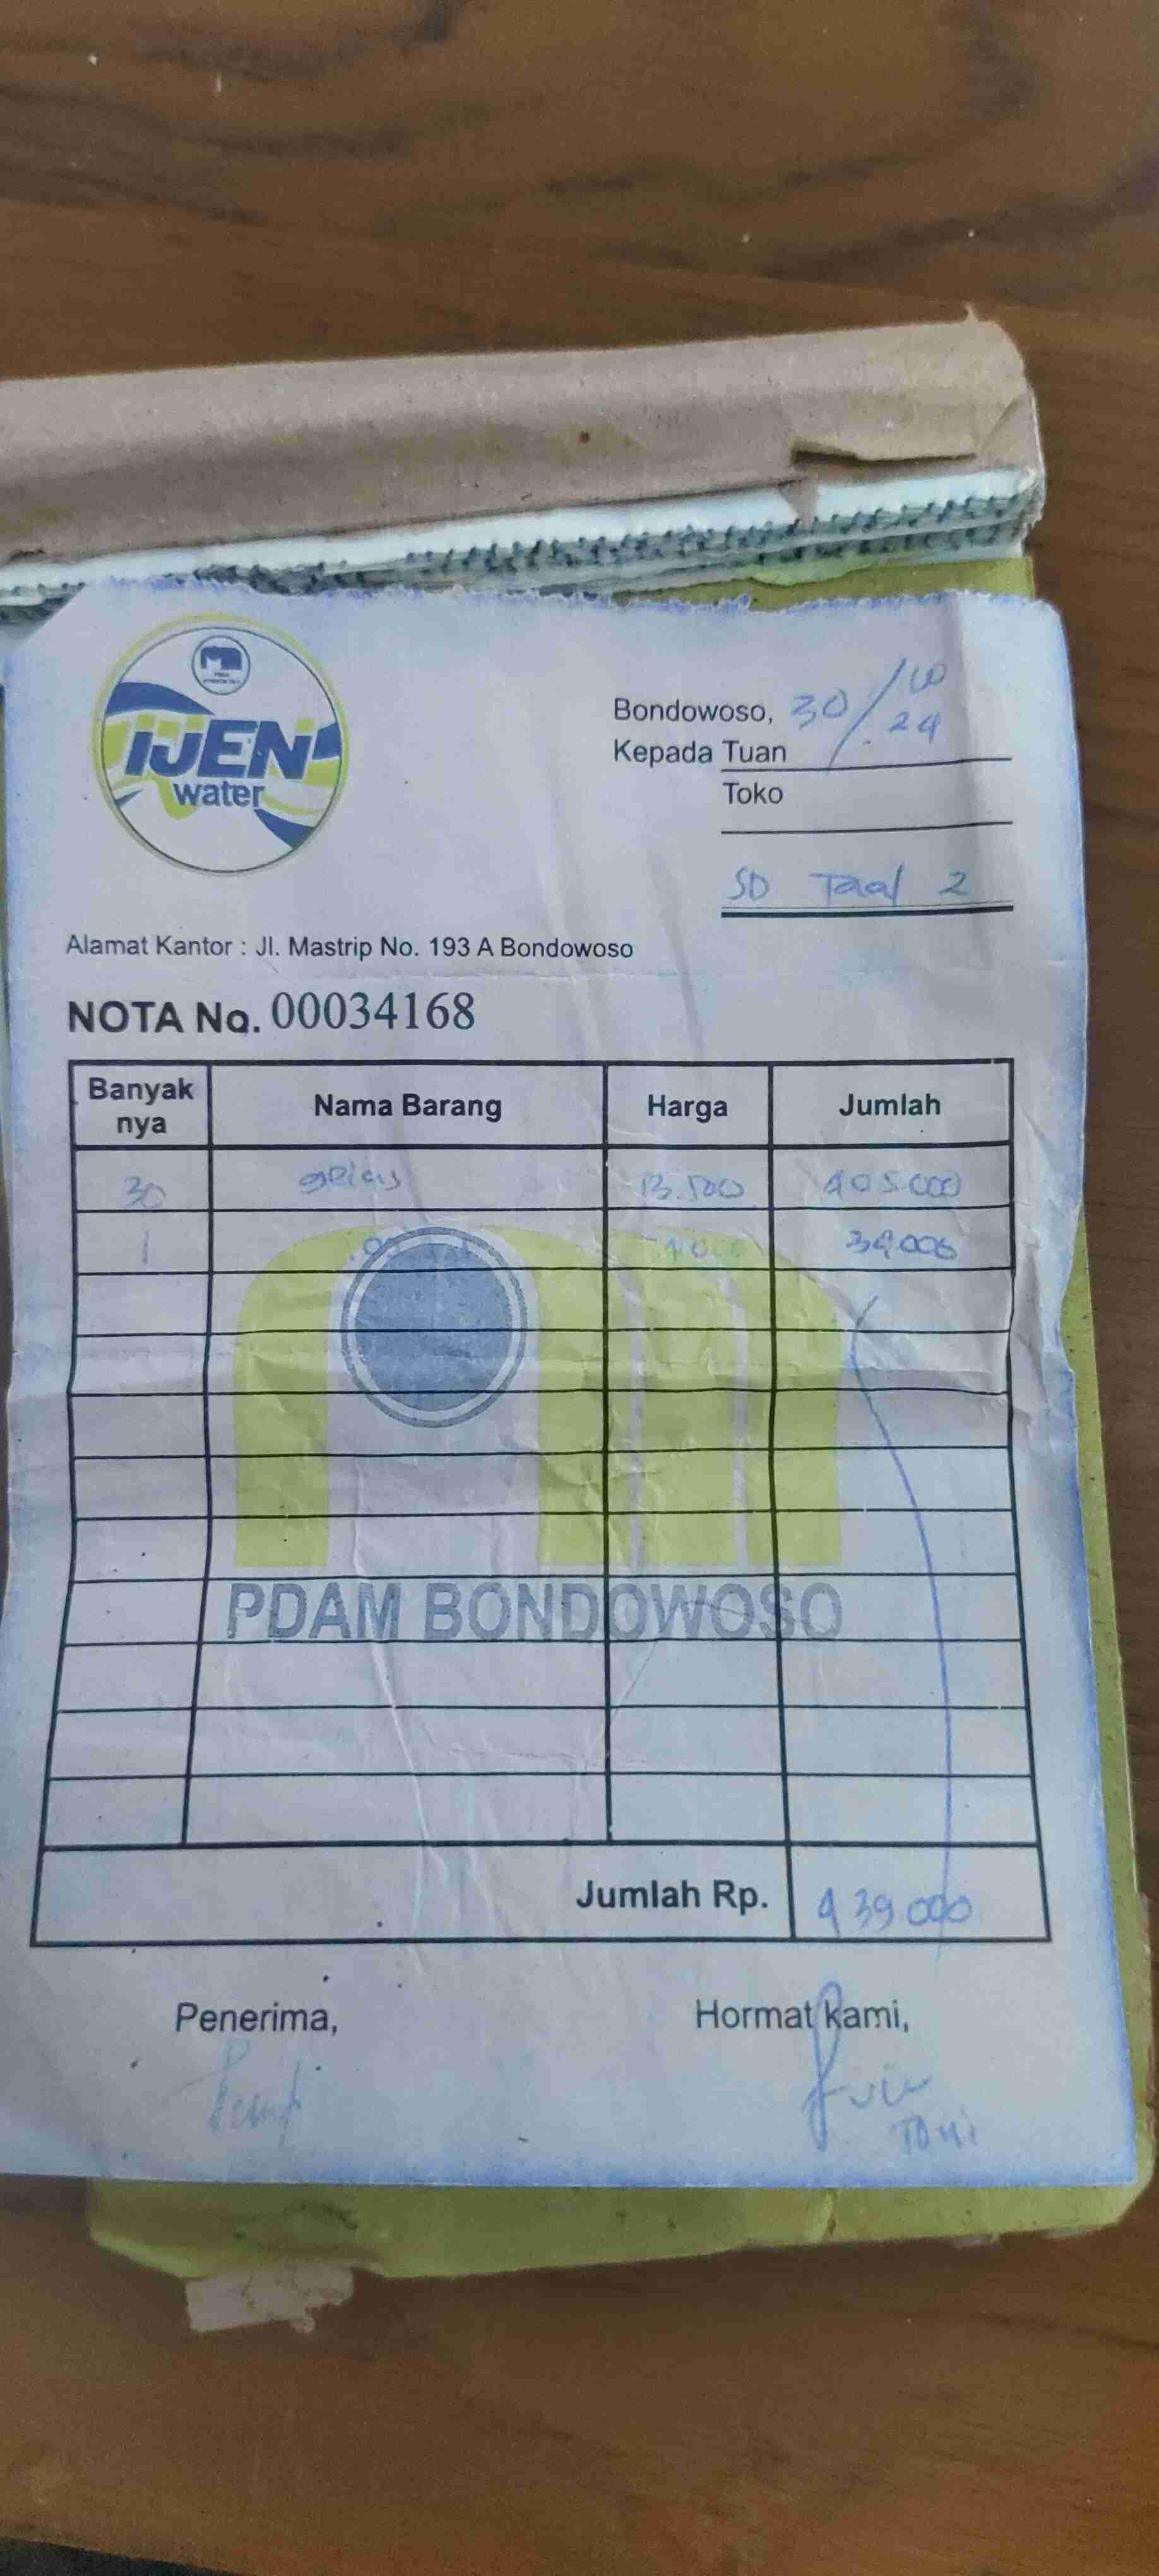 IJEN
water
Bondowoso, 30/10.24
Kepada Tuan
Toko
SD Taal 2
Alamat Kantor : Jl. Mastrip No. 193 A Bondowoso
NOTA No. 00034168
Banyak nya Nama Barang Harga Jumlah
30 gelas 13.500 405.000
1 34.000
PDAM BONDOWOSO
Jumlah Rp. 439.000
Penerima, Hormat kami,
Toni